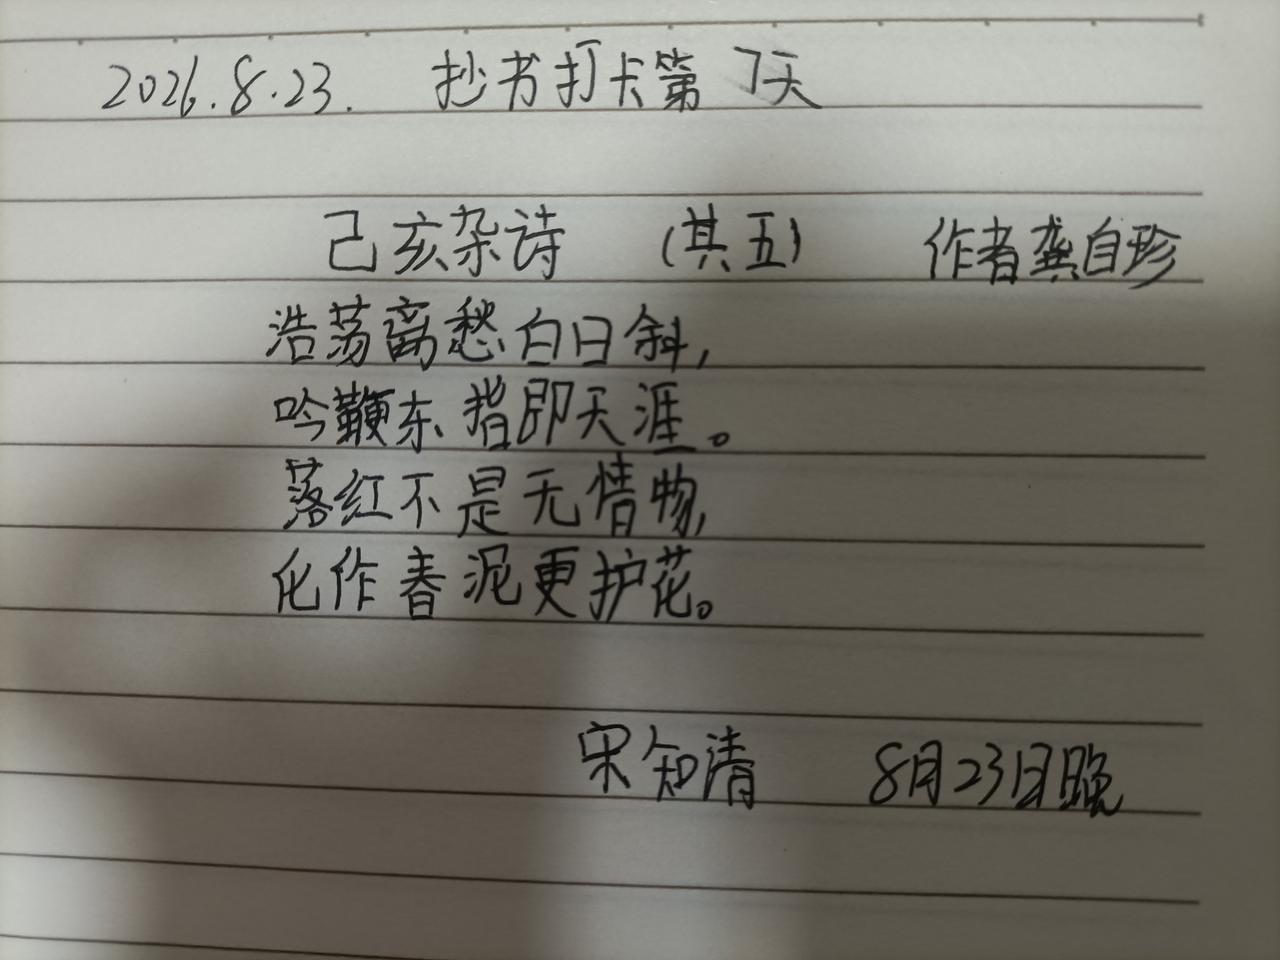 2026.8.23. 抄书打卡第7天
己亥杂诗 (其五) 作者龚自珍
浩荡离愁白日斜,
吟鞭东指即天涯。
落红不是无情物,
化作春泥更护花。
宋知清 8月23日晚